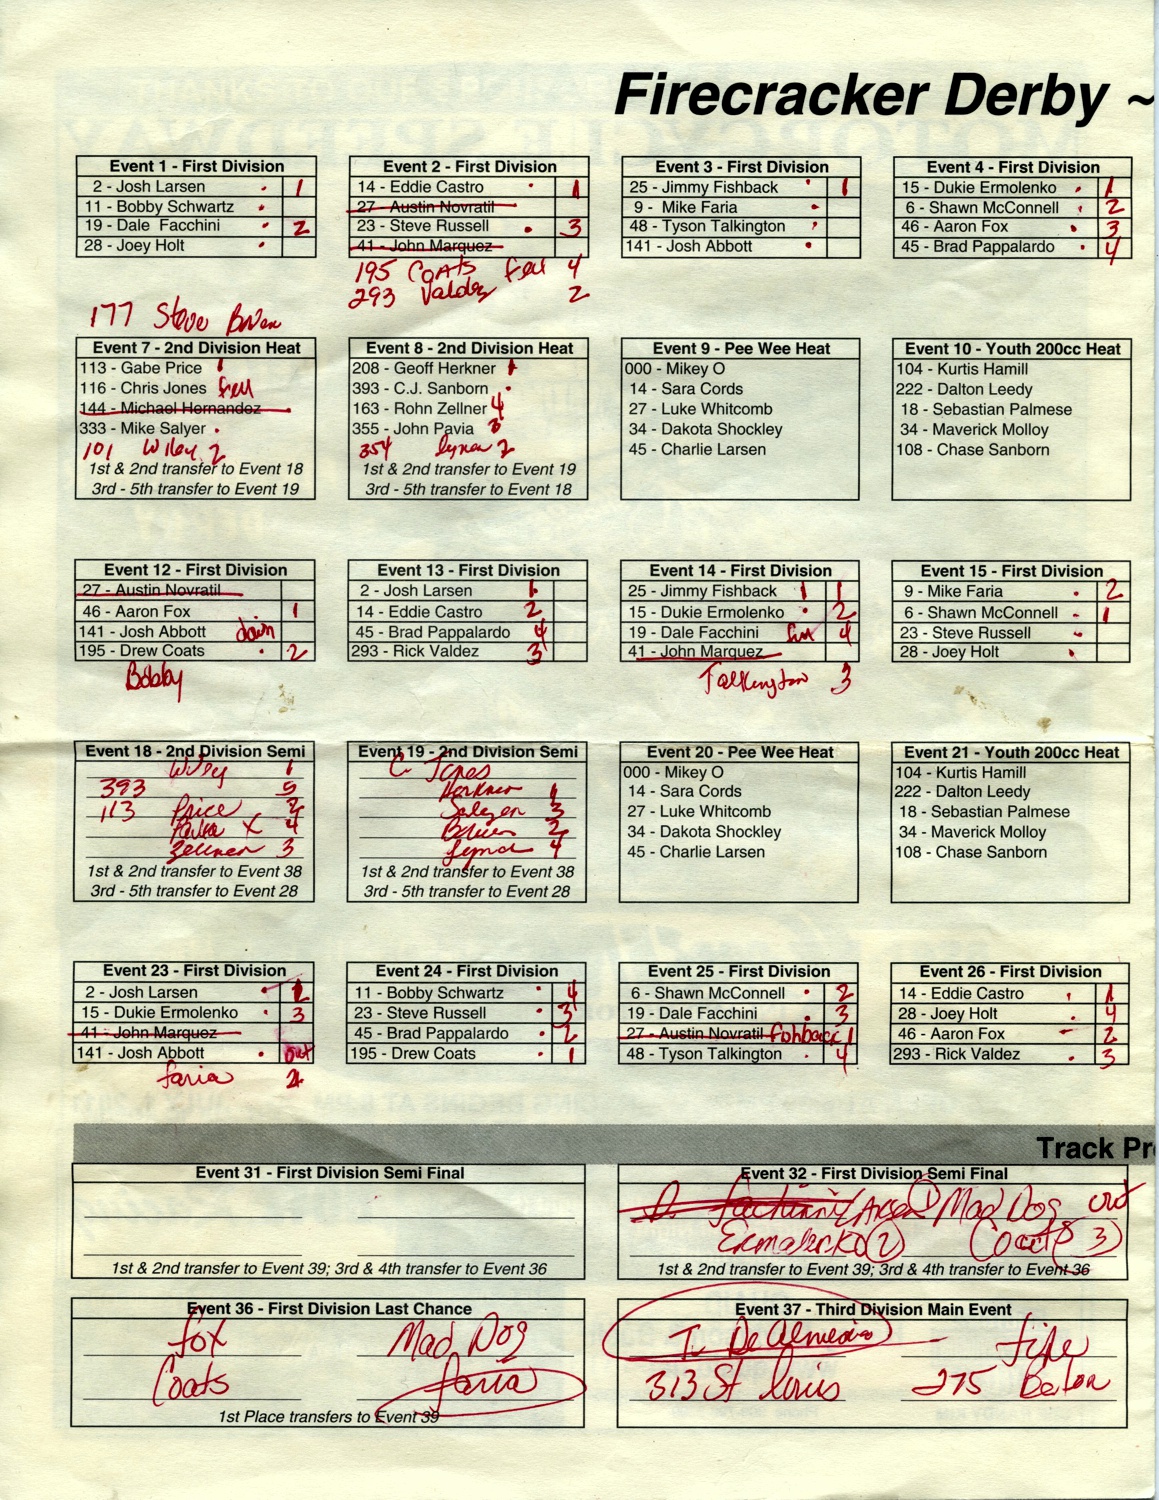 Firecracker Derby ~
Event 1 - First Division
2 - Josh Larsen 1
11 - Bobby Schwartz
19 - Dale Facchini 2
28 - Joey Holt
Event 2 - First Division
14 - Eddie Castro 1
27 - Austin Novratil
23 - Steve Russell 3
41 - John Marquez
195 Coats fell 4
293 Valdez 2
Event 3 - First Division
25 - Jimmy Fishback 1
9 - Mike Faria
48 - Tyson Talkington
141 - Josh Abbott
Event 4 - First Division
15 - Dukie Ermolenko 1
6 - Shawn McConnell 2
46 - Aaron Fox 3
45 - Brad Pappalardo 4
177 Steve
Event 7 - 2nd Division Heat
113 - Gabe Price 1
116 - Chris Jones fell
144 - Michael Hernandez
333 - Mike Salyer
101 Wiley 2
1st & 2nd transfer to Event 18
3rd - 5th transfer to Event 19
Event 8 - 2nd Division Heat
208 - Geoff Herkner 1
393 - C.J. Sanborn
163 - Rohn Zellner 4
355 - John Pavia 3
354 2
1st & 2nd transfer to Event 19
3rd - 5th transfer to Event 18
Event 9 - Pee Wee Heat
000 - Mikey O
14 - Sara Cords
27 - Luke Whitcomb
34 - Dakota Shockley
45 - Charlie Larsen
Event 10 - Youth 200cc Heat
104 - Kurtis Hamill
222 - Dalton Leedy
18 - Sebastian Palmese
34 - Maverick Molloy
108 - Chase Sanborn
Event 12 - First Division
27 - Austin Novratil
46 - Aaron Fox 1
141 - Josh Abbott down
195 - Drew Coats 2
Bobby
Event 13 - First Division
2 - Josh Larsen 1
14 - Eddie Castro 2
45 - Brad Pappalardo 4
293 - Rick Valdez 3
Event 14 - First Division
25 - Jimmy Fishback 1 1
15 - Dukie Ermolenko 2
19 - Dale Facchini 4
41 - John Marquez
Talkington 3
Event 15 - First Division
9 - Mike Faria 2
6 - Shawn McConnell 1
23 - Steve Russell
28 - Joey Holt
Event 18 - 2nd Division Semi
Wiley 1
393 5
113 Price 2
Pavia X 4
Zellner 3
1st & 2nd transfer to Event 38
3rd - 5th transfer to Event 28
Event 19 - 2nd Division Semi
C Jones
Herkner 1
Salyer 3
2
4
1st & 2nd transfer to Event 38
3rd - 5th transfer to Event 28
Event 20 - Pee Wee Heat
000 - Mikey O
14 - Sara Cords
27 - Luke Whitcomb
34 - Dakota Shockley
45 - Charlie Larsen
Event 21 - Youth 200cc Heat
104 - Kurtis Hamill
222 - Dalton Leedy
18 - Sebastian Palmese
34 - Maverick Molloy
108 - Chase Sanborn
Event 23 - First Division
2 - Josh Larsen
15 - Dukie Ermolenko 3
41 - John Marquez
141 - Josh Abbott out
Faria
Event 24 - First Division
11 - Bobby Schwartz 4
23 - Steve Russell 3
45 - Brad Pappalardo 2
195 - Drew Coats 1
Event 25 - First Division
6 - Shawn McConnell 2
19 - Dale Facchini 3
27 - Austin Novratil Fishback 1
48 - Tyson Talkington 4
Event 26 - First Division
14 - Eddie Castro 1
28 - Joey Holt 4
46 - Aaron Fox 2
293 - Rick Valdez 3
Track Pr
Event 31 - First Division Semi Final
1st & 2nd transfer to Event 39; 3rd & 4th transfer to Event 36
Event 32 - First Division Semi Final
D. Facchini Larsen 1 Mad Dog out
Ermolenko 2 Coats 3
1st & 2nd transfer to Event 39; 3rd & 4th transfer to Event 36
Event 36 - First Division Last Chance
Fox Mad Dog
Coats Faria
1st Place transfers to Event 39
Event 37 - Third Division Main Event
T. De Almeida
313 St Louis 275